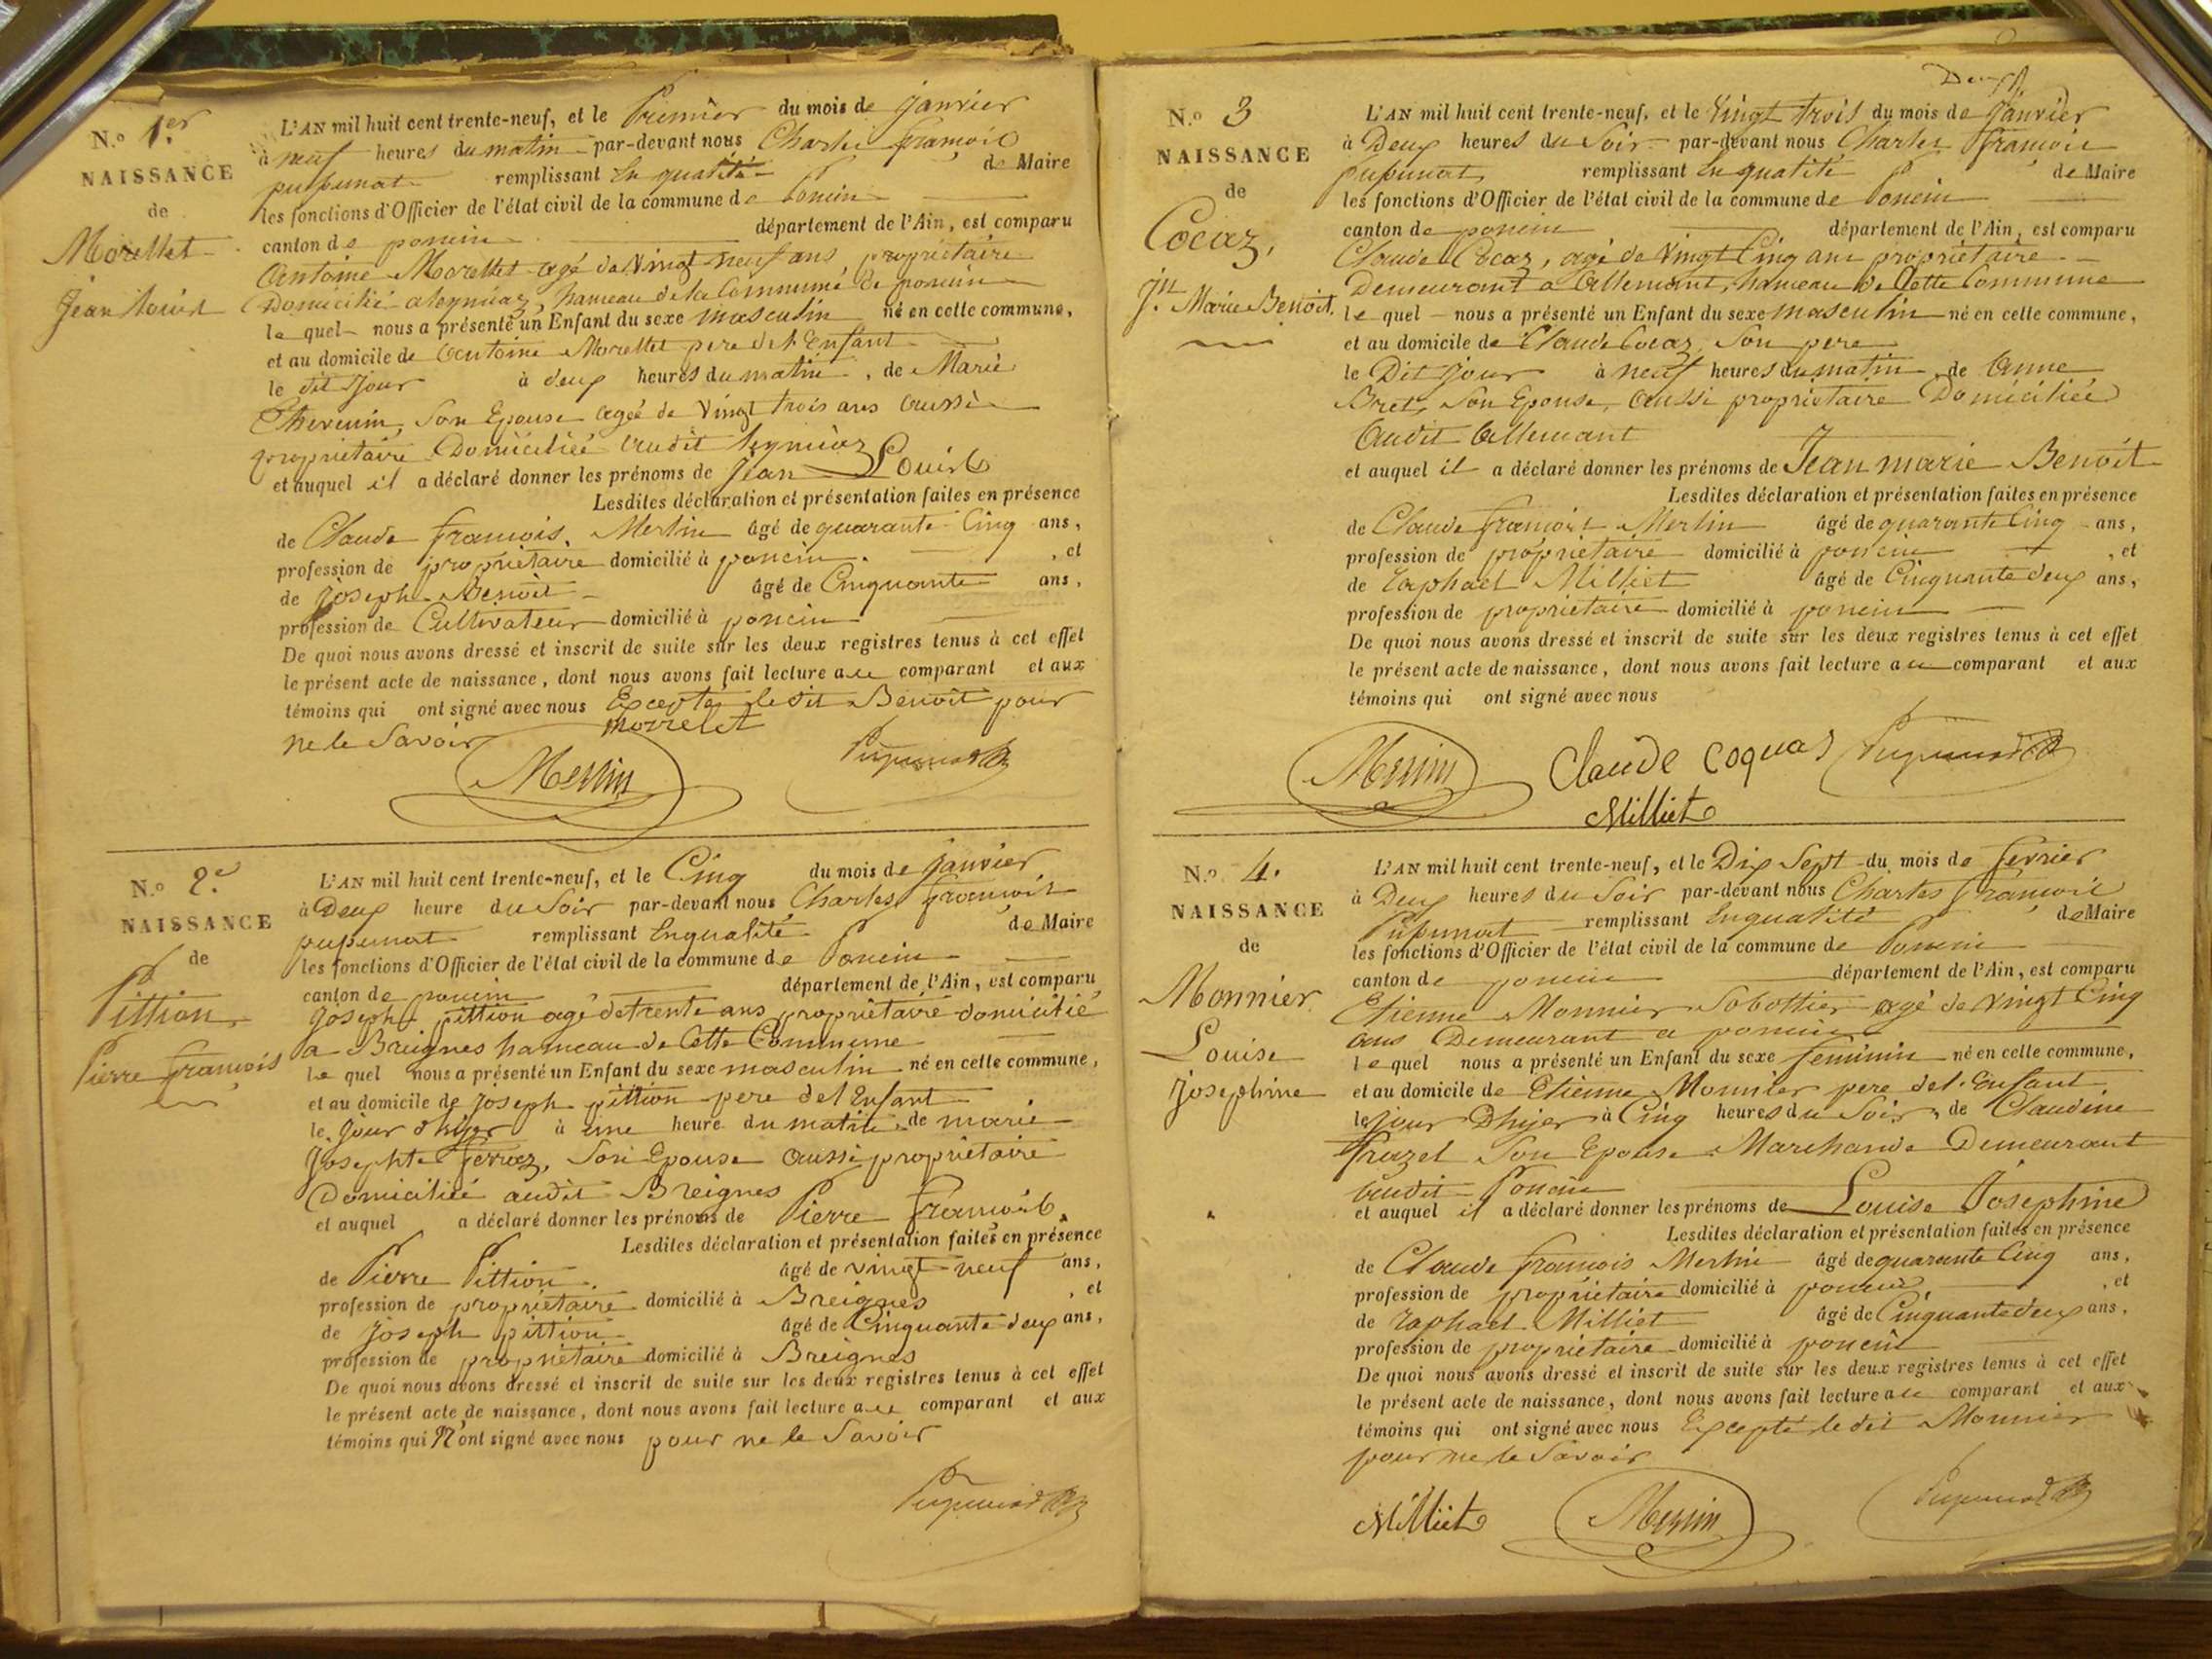 N.o 1.er
NAISSANCE
de
Morellet
Jean Louis
L'AN mil huit cent trente-neuf, et le Premier du mois de janvier
à neuf heures du matin par-devant nous Charles françois
pupunat remplissant En qualité de Maire
les fonctions d'Officier de l'état civil de la commune de Poncin
canton de poncin département de l'Ain, est comparu
Antoine Morellet agé de Vingt neuf ans propriétaire
Domicilié a leymiaz, hameau de la Commune de poncin
le quel nous a présenté un Enfant du sexe masculin né en cette commune,
et au domicile de Antoine Morellet pere de l'Enfant
le dit jour à deux heures du matin, de Marie
Thevenin, Son Epouse agée de Vingt trois ans Aussi
propriétaire Domiciliée Audit leymiaz
et auquel il a déclaré donner les prénoms de Jean Louis
Lesdites déclaration et présentation faites en présence
de Claude françois Merlin âgé de quarante Cinq ans,
profession de propriétaire domicilié à poncin, et
de joseph Benoit âgé de Cinquante ans,
profession de Cultivateur domicilié à poncin
De quoi nous avons dressé et inscrit de suite sur les deux registres tenus à cet effet
le présent acte de naissance, dont nous avons fait lecture au comparant et aux
témoins qui ont signé avec nous Excepté ledit Benoit pour
ne le Savoir
morrelet
Merlin Pupunat
N.o 2.e
NAISSANCE
de
Pittion,
Pierre françois
L'AN mil huit cent trente-neuf, et le Cinq du mois de janvier
à Deux heure du Soir par-devant nous Charles françois
pupunat remplissant En qualité de Maire
les fonctions d'Officier de l'état civil de la commune de Poncin
canton de poncin département de l'Ain, est comparu
joseph pittion agé de trente ans propriétaire domicilié
a Breignes hameau de Cette Commune
le quel nous a présenté un Enfant du sexe masculin né en cette commune,
et au domicile de joseph pittion pere de l'Enfant
le jour d'hyer à une heure du matin, de marie
josephte ferroz, Son Epouse Aussi propriétaire
Domiciliée audit Breignes
et auquel a déclaré donner les prénoms de Pierre françois
Lesdites déclaration et présentation faites en présence
de Pierre Pittion âgé de vingt neuf ans,
profession de propriétaire domicilié à Breignes, et
de joseph pittion âgé de Cinquante deux ans,
profession de propriétaire domicilié à Breignes
De quoi nous avons dressé et inscrit de suite sur les deux registres tenus à cet effet
le présent acte de naissance, dont nous avons fait lecture au comparant et aux
témoins qui N'ont signé avec nous pour ne le Savoir
Pupunat
Deux
N.o 3
NAISSANCE
de
Cocaz,
Jn. Marie Benoit.
L'AN mil huit cent trente-neuf, et le Vingt trois du mois de janvier
à Deux heures du Soir par-devant nous Charles françois
pupunat remplissant En qualité de Maire
les fonctions d'Officier de l'état civil de la commune de Poncin
canton de poncin département de l'Ain, est comparu
Claude Cocaz, agé de Vingt Cinq ans propriétaire
Demeurant a Allemant, hameau de Cette Commune
le quel nous a présenté un Enfant du sexe masculin né en cette commune,
et au domicile de Claude Cocaz, Son pere
le Dit jour à neuf heures du matin, de Anne
Bret, Son Epouse, Aussi propriétaire Domiciliée
Audit Allemant
et auquel il a déclaré donner les prénoms de Jean marie Benoit
Lesdites déclaration et présentation faites en présence
de Claude françois Merlin âgé de quarante Cinq ans,
profession de propriétaire domicilié à poncin, et
de raphael Milliet âgé de Cinquante deux ans,
profession de propriétaire domicilié à poncin
De quoi nous avons dressé et inscrit de suite sur les deux registres tenus à cet effet
le présent acte de naissance, dont nous avons fait lecture au comparant et aux
témoins qui ont signé avec nous
Merlin Claude coquas Pupunat
Milliet
N.o 4.
NAISSANCE
de
Monnier
Louise
josephine
L'AN mil huit cent trente-neuf, et le Dix Sept du mois de fevrier
à Deux heures du Soir par-devant nous Charles françois
Pupunat remplissant En qualité de Maire
les fonctions d'Officier de l'état civil de la commune de Poncin
canton de poncin département de l'Ain, est comparu
Etienne Monnier Sabottier agé de Vingt Cinq
ans Demeurant a poncin
le quel nous a présenté un Enfant du sexe feminin né en cette commune,
et au domicile de Etienne Monnier pere de l'Enfant
le jour D'hyer à Cinq heures du Soir, de Claudine
frazel Son Epouse Marchande Demeurant
Audit Poncin
et auquel il a déclaré donner les prénoms de Louise Josephine
Lesdites déclaration et présentation faites en présence
de Claude françois Merlin âgé de quarante Cinq ans,
profession de propriétaire domicilié à poncin, et
de raphael Milliet âgé de Cinquante deux ans,
profession de propriétaire domicilié à poncin
De quoi nous avons dressé et inscrit de suite sur les deux registres tenus à cet effet
le présent acte de naissance, dont nous avons fait lecture au comparant et aux
témoins qui ont signé avec nous Excepté le dit Monnier
pour ne le Savoir
Milliet Merlin Pupunat